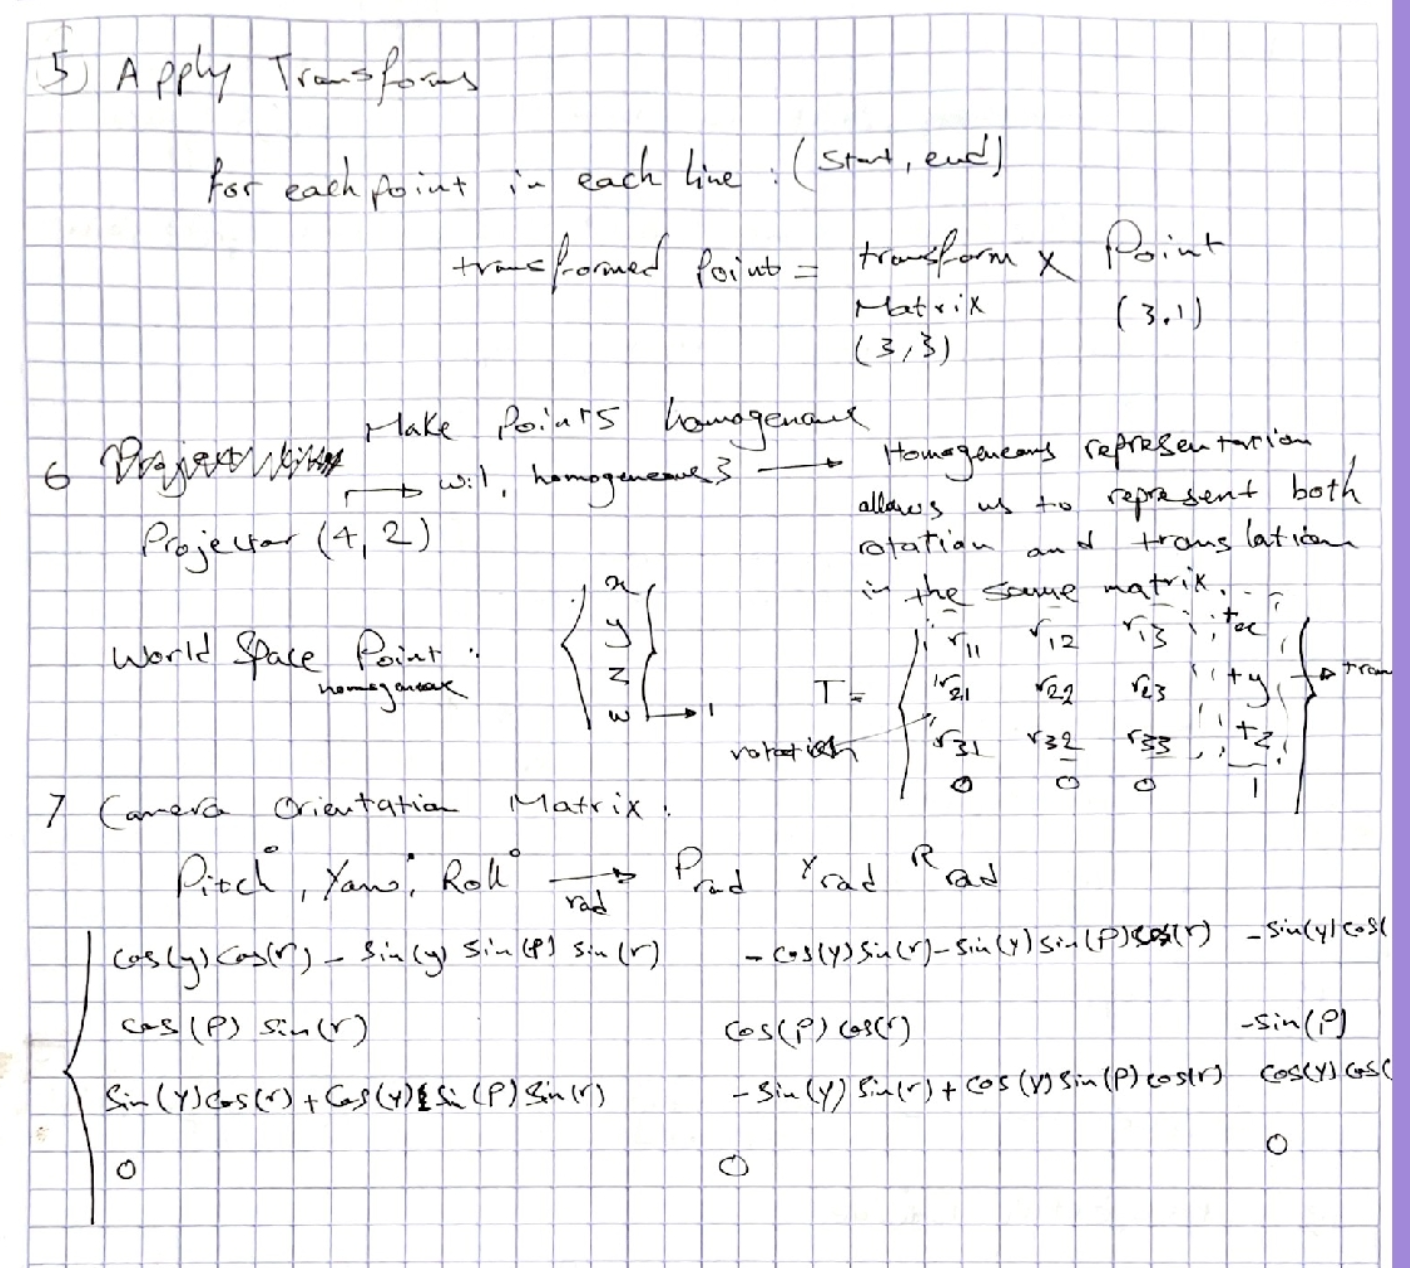 5) Apply Transforms
for each point in each line : (start, end)
transformed Point = transform x Point
Matrix (3,1)
(3,3)
Make Points homogenous
6
w:1, homogeneous} → Homogeneous representation
allows us to represent both
Projector (4,2)
rotation and translation
in the same matrix.
World Space Point :
homogenous
x
y
z
w → 1
T =
r11 r12 r13 tx
r21 r22 r23 ty → tran
r31 r32 r33 tz
0 0 0 1
rotation
7 Camera Orientation Matrix :
Pitch°, Yaw°, Roll° → rad Prad Yrad Rrad
cos(y) cos(r) - sin(y) sin(P) sin(r) - cos(y) sin(r) - sin(y) sin(P) cos(r) - sin(y) cos(
cos(P) sin(r) cos(P) cos(r) -sin(P)
sin(y) cos(r) + cos(y) sin(P) sin(r) - sin(y) sin(r) + cos(y) sin(P) cos(r) cos(y) cos(
0 0 0